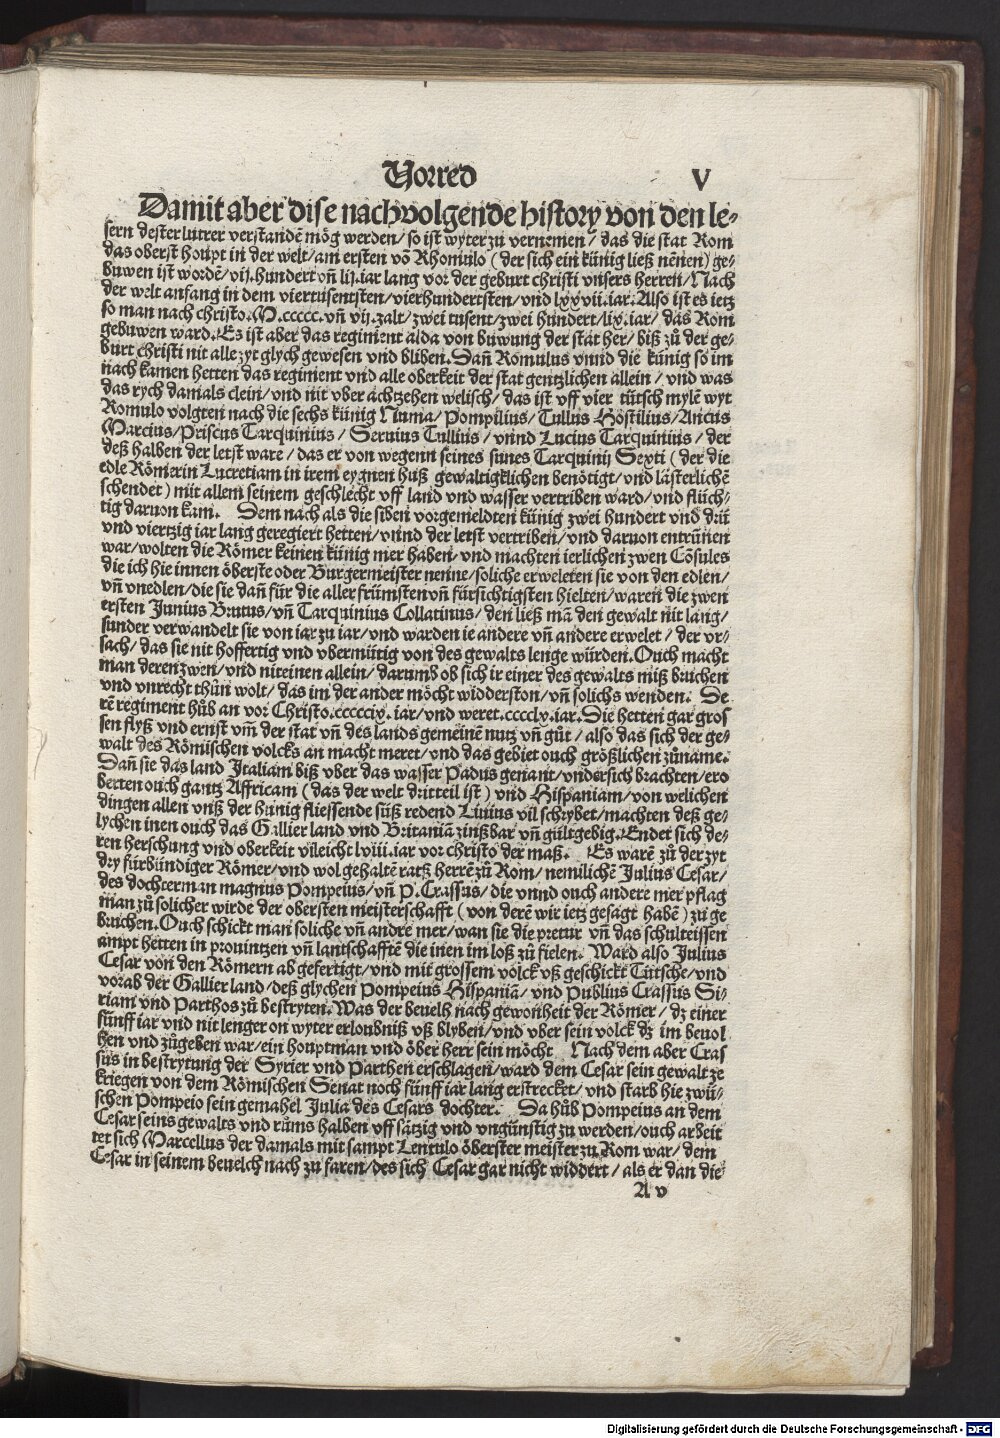 Vorred V
Damit aber dise nachvolgende history von den le-
sern dester lutrer verstandē mög werden/ so ist wyter zu vernemen/ das die stat Rom
das oberst houpt in der welt/ am ersten vō Rhomulo (der sich ein künig ließ nēnen) ge-
buwen ist wordē/ vij.hundert vñ lij.iar lang vor der geburt christi vnsers herren/ Nach
der welt anfang in dem viertusentsten/ vierhundertsten/ vnd lxxvii.iar. Also ist es ietz
so man nach christo.M.ccccc.vñ vij.zalt/ zwei tusent/ zwei hundert/ lix.iar/ das Rom
gebuwen ward. Es ist aber das regiment alda von buwung der stat her/ biß zů der ge-
burt christi nit alle zyt glych gewesen vnd bliben. Dañ Romulus vnnd die künig so im
nach kamen hetten das regiment vnd alle oberkeit der stat gentzlichen allein/ vnd was
das rych damals clein/ vnd nit vber achtzehen welisch/ das ist vff vier tütsch mylē wyt
Romulo volgten nach die sechs künig Numa/ Pompilius/ Tullus Hostilius/ Ancus
Marcius/ Priscus Tarquinius/ Seruius Tullius/ vnnd Lucius Tarquinius/ der
deß halben der letst ware/ das er von wegenn seines sunes Tarquinij Sexti (der die
edle Römerin Lucretiam in irem eygnen huß gewaltigklichen benötigt/ vnd lästerlichē
schendet) mit allem seinem geschlecht vff land vnd wasser vertriben ward/ vnd flüch-
tig daruon kam. Dem nach als die siben vorgemeldten künig zwei hundert vnd drü
vnd viertzig iar lang geregiert hetten/ vnnd der letst vertriben/ vnd daruon entrunnen
war/ wolten die Römer keinen künig mer haben/ vnd machten ierlichen zwen Cōsules
die ich hie innen öberste oder Burgermeister nenne/ soliche erweleten sie von den edlen/
vñ vnedlen/ die sie dañ für die aller frümsten vñ fürsichtigsten hielten/ waren die zwen
ersten Junius Brutus/ vñ Tarquinius Collatinus/ den ließ mā den gewalt nit lang/
sunder verwandelt sie von iar zu iar/ vnd warden ie andere vñ andere erwelet/ der vr-
sach/ das sie nit hoffertig vnd vbermütig von des gewalts lenge würden. Ouch macht
man deren zwen/ vnd nit einen allein/ darumb ob sich ir einer des gewalts miß bruchen
vnd vnrecht thůn wolt/ das im der ander möcht widderston/ vñ solichs wenden. De-
rē regiment hůb an vor Christo.cccccix.iar/ vnd weret.cccclv.iar. Die hetten gar gros
sen flyß vnd ernst vm̄ der stat vñ des lands gemeinē nutz vñ gůt/ also das sich der ge-
walt des Römischen volcks an macht meret/ vnd das gebiet ouch größlichen zůname.
Dañ sie das land Italiam biß vber das wasser Padus genant/ vndersich brachten/ ero
berten ouch gantz Affricam (das der welt dritteil ist) vnd Hispaniam/ von welichen
dingen allen vnß der hunig fliessende süß redend Liuius vil schrybet/ machten deß ge-
lychen inen ouch das Gallier land vnd Britaniā zinßbar vñ gültgebig. Endet sich de-
ren herschung vnd oberkeit vileicht lviii.iar vor christo der maß. Es warē zů der zyt
dry fürbündiger Römer/ vnd wol gehaltē ratß herrē zů Rom/ nemilichē Julius Cesar/
des dochterman magnus Pompeius/ vñ P. Crassus/ die vnnd ouch andere mer pflag
man zů solicher wirde der obersten meisterschafft (von derē wir ietz gesagt habē) zu ge
bruchen. Ouch schickt man soliche vñ andre mer/ wan sie die pretur vñ das schulteissen
ampt hetten in prouintzen vñ lantschafftē die inen im loß zů fielen. Ward also Julius
Cesar von den Römern ab gefertigt/ vnd mit grossem volck vß geschickt Tütsche/ vnd
vorab der Gallier land/ deß glychen Pompeius Hispaniā/ vnd Publius Crassus Si-
riam vnd Parthos zů bestryten. Was der beuelh nach gewonheit der Römer/ dz einer
fünff iar vnd nit lenger on wyter erloubniß vß blyben/ vnd vber sein volck dz im beuol
hen vnd zůgeben war/ ein houptman vnd öber herr sein möcht Nach dem aber Cras
sus in bestrytung der Syrier vnd Parthen erschlagen/ ward dem Cesar sein gewalt ze
kriegen von dem Römischen Senat noch fünff iar lang erstrecket/ vnd starb hie zwü-
schen Pompeio sein gemahel Julia des Cesars dochter. Da hůb Pompeius an dem
Cesar seins gewalts vnd růms halben vff sätzig vnd vngünstig zu werden/ ouch arbeit
tet sich Marcellus der damals mit sampt Lentulo öberster meister zu Rom war/ dem
Cesar in seinem beuelch nach zu faren/ des sich Cesar gar nicht widdert/ als er dan die
A v
Digitalisierung gefördert durch die Deutsche Forschungsgemeinschaft - DFG